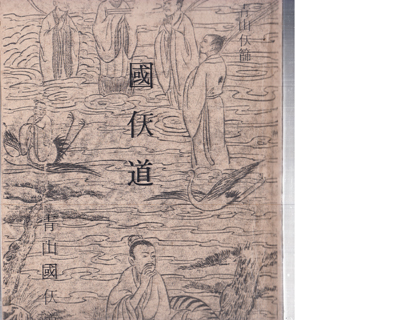 青山伏篩
國伏道
青山國伏